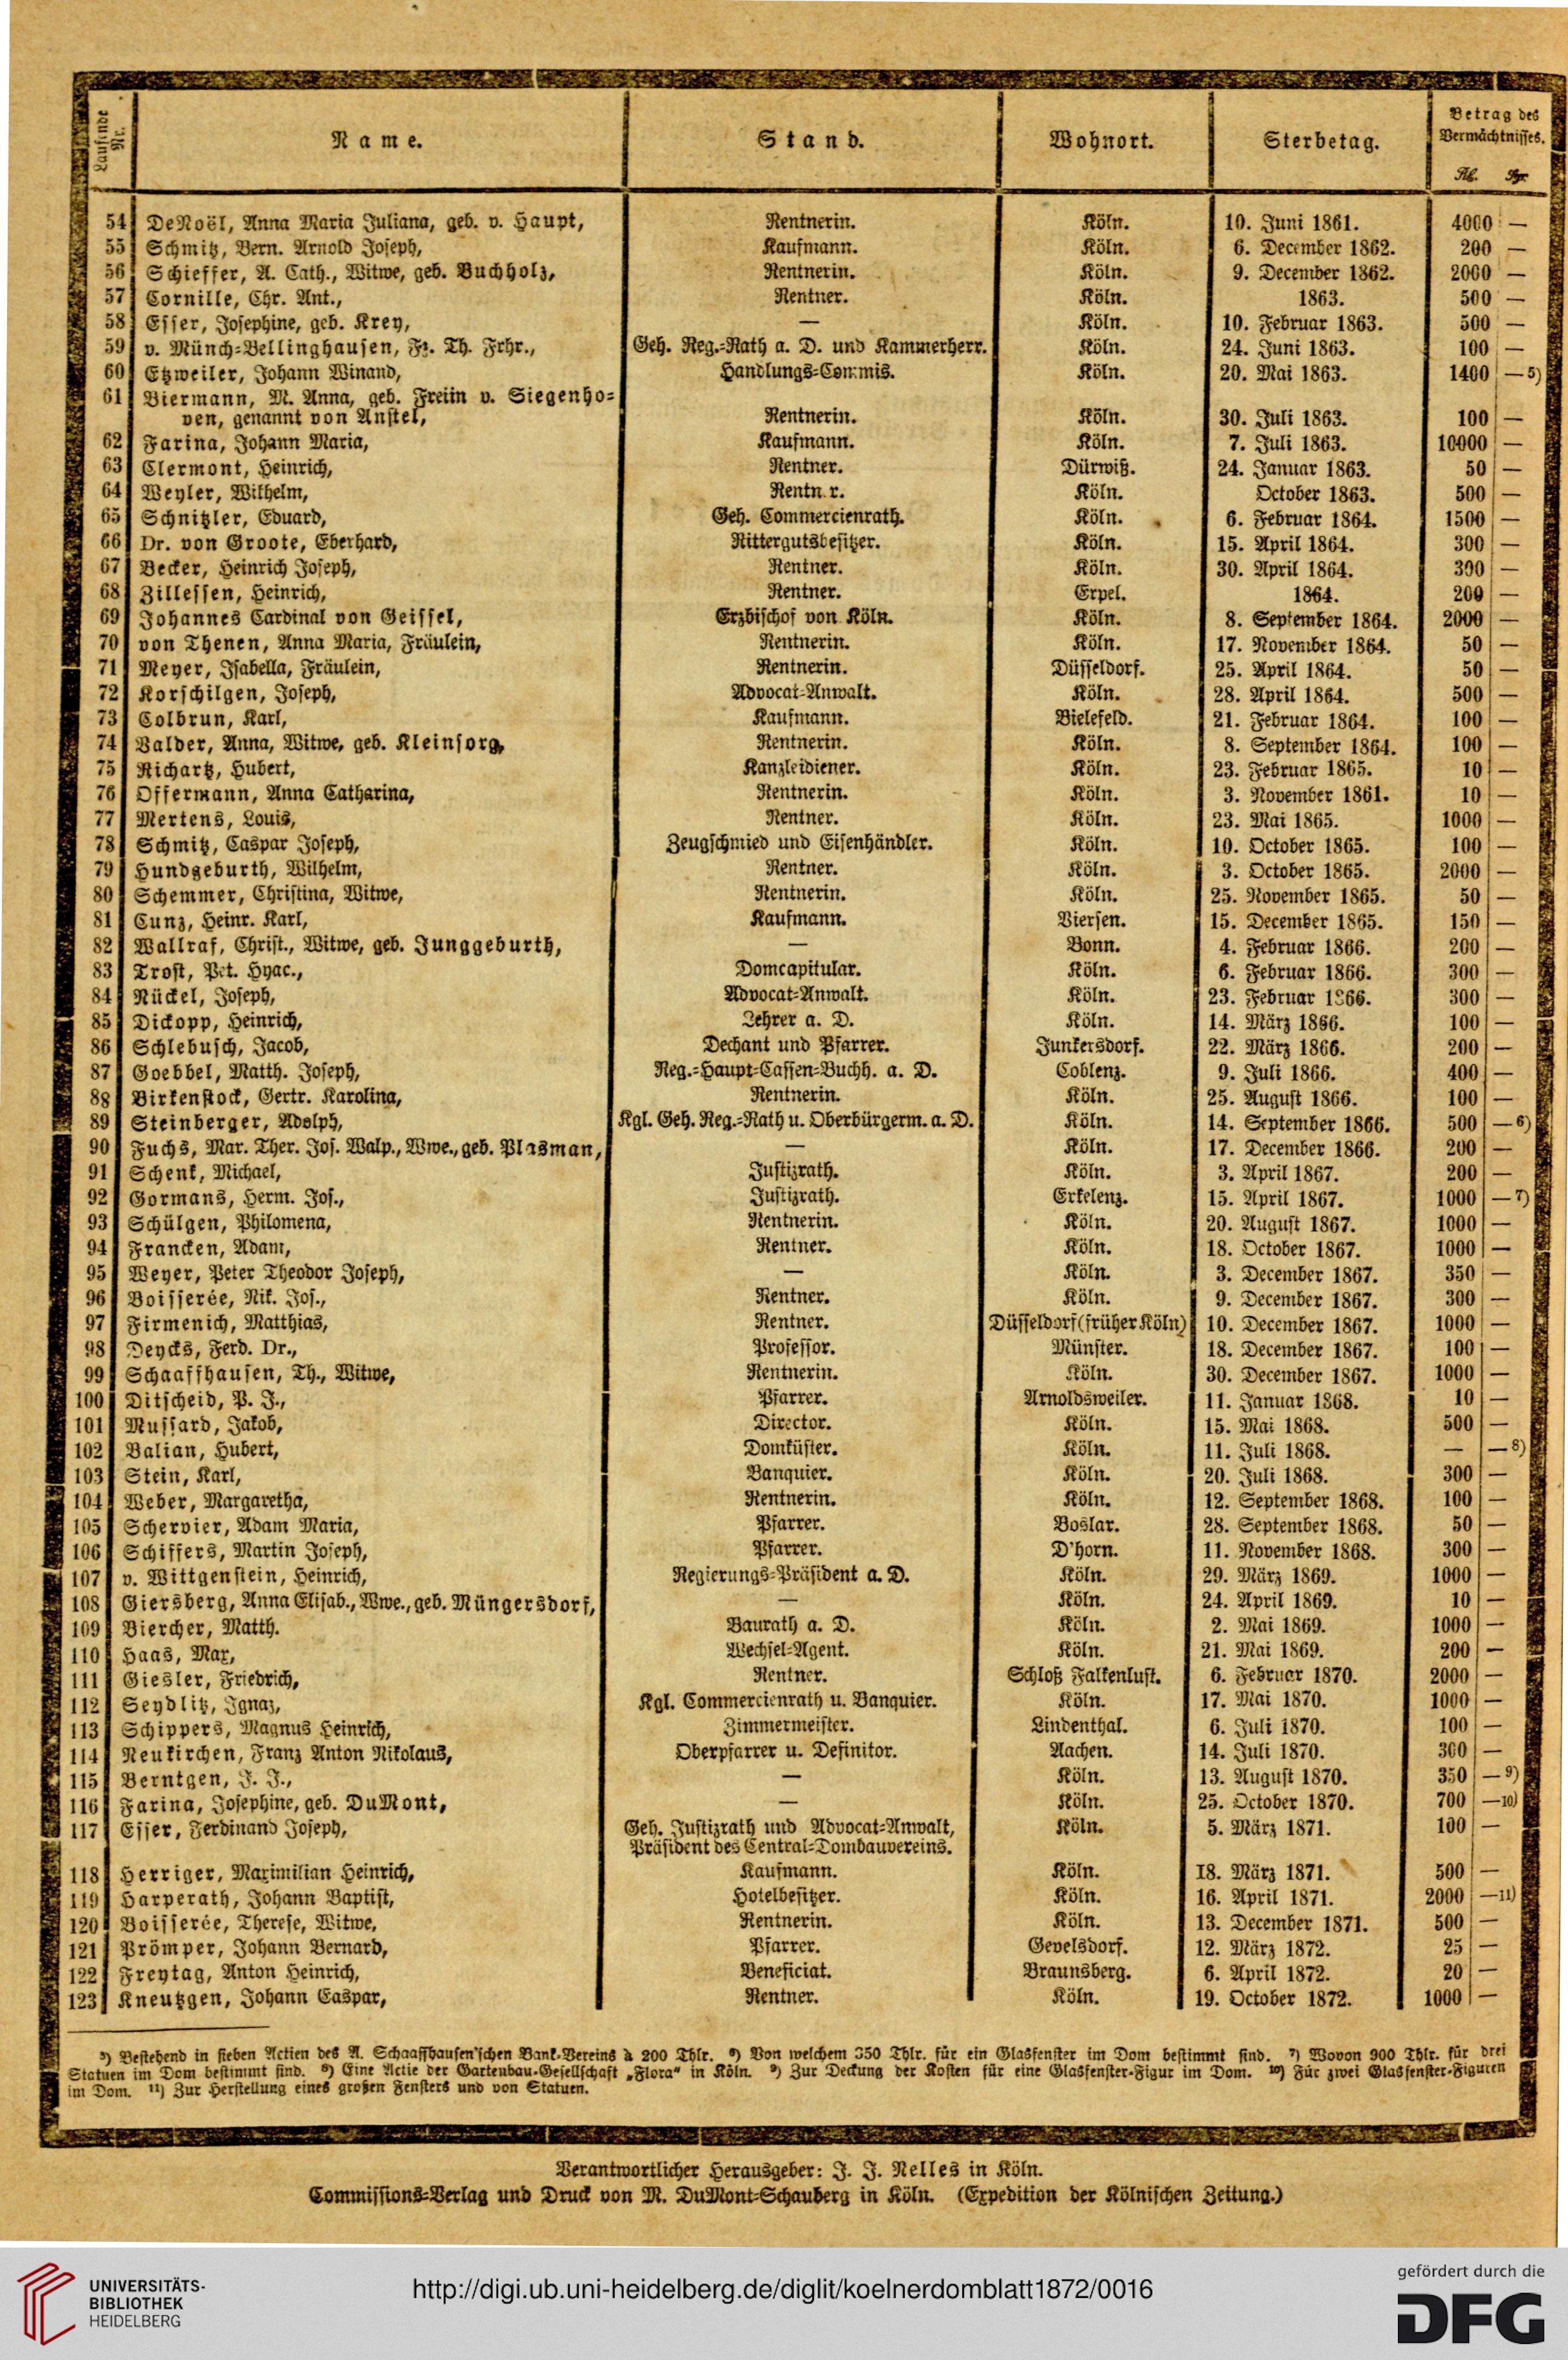 Laufende Nr. Name. Stand. Wohnort. Sterbetag. Betrag des Vermächtnisses.
54 DeNoël, Anna Maria Juliana, geb. v. Haupt, Rentnerin. Köln. 10. Juni 1861. 4000 —
55 Schmitz, Bern. Arnold Joseph, Kaufmann. Köln. 6. December 1862. 200 —
56 Schieffer, A. Cath., Witwe, geb. Buchholz, Rentnerin. Köln. 9. December 1862. 2000 —
57 Cornille, Chr. Ant., Rentner. Köln. 1863. 500 —
58 Esser, Josephine, geb. Krey, — Köln. 10. Februar 1863. 500 —
59 v. Münch-Bellinghausen, Fz. Th. Frhr., Geh. Reg.-Rath a. D. und Kammerherr. Köln. 24. Juni 1863. 100 —
60 Etzweiler, Johann Winand, Handlungs-Commis. Köln. 20. Mai 1863. 1400 — 5)
61 Biermann, M. Anna, geb. Freiin v. Siegenho-
ven, genannt von Anstel, Rentnerin. Köln. 30. Juli 1863. 100 —
62 Farina, Johann Maria, Kaufmann. Köln. 7. Juli 1863. 10000 —
63 Clermont, Heinrich, Rentner. Dürwiß. 24. Januar 1863. 50 —
64 Weyler, Wilhelm, Rentn r. Köln. October 1863. 500 —
65 Schnitzler, Eduard, Geh. Commercienrath. Köln. 6. Februar 1864. 1500 —
66 Dr. von Groote, Eberhard, Rittergutsbesitzer. Köln. 15. April 1864. 300 —
67 Becker, Heinrich Joseph, Rentner. Köln. 30. April 1864. 300 —
68 Zillessen, Heinrich, Rentner. Erpel. 1864. 200 —
69 Johannes Cardinal von Geissel, Erzbischof von Köln. Köln. 8. September 1864. 2000 —
70 von Thenen, Anna Maria, Fräulein, Rentnerin. Köln. 17. November 1864. 50 —
71 Meyer, Isabella, Fräulein, Rentnerin. Düsseldorf. 25. April 1864. 50 —
72 Korschilgen, Joseph, Advocat-Anwalt. Köln. 28. April 1864. 500 —
73 Colbrun, Karl, Kaufmann. Bielefeld. 21. Februar 1864. 100 —
74 Balder, Anna, Witwe, geb. Kleinsorg, Rentnerin. Köln. 8. September 1864. 100 —
75 Richartz, Hubert, Kanzleidiener. Köln. 23. Februar 1865. 10 —
76 Offermann, Anna Catharina, Rentnerin. Köln. 3. November 1861. 10 —
77 Mertens, Louis, Rentner. Köln. 23. Mai 1865. 1000 —
78 Schmitz, Caspar Joseph, Zeugschmied und Eisenhändler. Köln. 10. October 1865. 100 —
79 Hundgeburth, Wilhelm, Rentner. Köln. 3. October 1865. 2000 —
80 Schemmer, Christina, Witwe, Rentnerin. Köln. 25. November 1865. 50 —
81 Cunz, Heinr. Karl, Kaufmann. Viersen. 15. December 1865. 150 —
82 Wallraf, Christ., Witwe, geb. Junggeburth, — Bonn. 4. Februar 1866. 200 —
83 Trost, Pet. Hyac., Domcapitular. Köln. 6. Februar 1866. 300 —
84 Nückel, Joseph, Advocat-Anwalt. Köln. 23. Februar 1866. 300 —
85 Dickopp, Heinrich, Lehrer a. D. Köln. 14. März 1866. 100 —
86 Schlebusch, Jacob, Dechant und Pfarrer. Junkersdorf. 22. März 1866. 200 —
87 Goebbel, Matth. Joseph, Reg.-Haupt-Cassen-Buchh. a. D. Coblenz. 9. Juli 1866. 400 —
88 Birkenstock, Gertr. Karolina, Rentnerin. Köln. 25. August 1866. 100 —
89 Steinberger, Adolph, Kgl. Geh. Reg.-Rath u. Oberbürgerm. a. D. Köln. 14. September 1866. 500 — 6)
90 Fuchs, Mar. Ther. Jos. Walp., Wwe., geb. Plasman, — Köln. 17. December 1866. 200 —
91 Schenk, Michael, Justizrath. Köln. 3. April 1867. 200 —
92 Gormans, Herm. Jos., Justizrath. Erkelenz. 15. April 1867. 1000 — 7)
93 Schülgen, Philomena, Rentnerin. Köln. 20. August 1867. 1000 —
94 Francken, Adam, Rentner. Köln. 18. October 1867. 1000 —
95 Weyer, Peter Theodor Joseph, — Köln. 3. December 1867. 350 —
96 Boisserée, Nik. Jos., Rentner. Köln. 9. December 1867. 300 —
97 Firmenich, Matthias, Rentner. Düsseldorf (früher Köln) 10. December 1867. 1000 —
98 Deycks, Ferd. Dr., Professor. Münster. 18. December 1867. 100 —
99 Schaaffhausen, Th., Witwe, Rentnerin. Köln. 30. December 1867. 1000 —
100 Ditscheid, P. J., Pfarrer. Arnoldsweiler. 11. Januar 1868. 10 —
101 Mussard, Jakob, Director. Köln. 15. Mai 1868. 500 —
102 Balian, Hubert, Domküster. Köln. 11. Juli 1868. — — 8)
103 Stein, Karl, Banquier. Köln. 20. Juli 1868. 300 —
104 Weber, Margaretha, Rentnerin. Köln. 12. September 1868. 100 —
105 Schervier, Adam Maria, Pfarrer. Boslar. 28. September 1868. 50 —
106 Schiffers, Martin Joseph, Pfarrer. D'horn. 11. November 1868. 300 —
107 v. Wittgenstein, Heinrich, Regierungs-Präsident a. D. Köln. 29. März 1869. 1000 —
108 Giersberg, Anna Elisab., Wwe., geb. Müngersdorf, — Köln. 24. April 1869. 10 —
109 Biercher, Matth. Baurath a. D. Köln. 2. Mai 1869. 1000 —
110 Haas, Max, Wechsel-Agent. Köln. 21. Mai 1869. 200 —
111 Giesler, Friedrich, Rentner. Schloß Falkenlust. 6. Februar 1870. 2000 —
112 Seydlitz, Ignaz, Kgl. Commercienrath u. Banquier. Köln. 17. Mai 1870. 1000 —
113 Schippers, Magnus Heinrich, Zimmermeister. Lindenthal. 6. Juli 1870. 100 —
114 Neukirchen, Franz Anton Nikolaus, Oberpfarrer u. Definitor. Aachen. 14. Juli 1870. 300 —
115 Berntgen, J. J., — Köln. 13. August 1870. 350 — 9)
116 Farina, Josephine, geb. DuMont, — Köln. 25. October 1870. 700 — 10)
117 Esser, Ferdinand Joseph, Geh. Justizrath und Advocat-Anwalt, Köln. 5. März 1871. 100 —
Präsident des Central-Dombauvereins.
118 Herriger, Maximilian Heinrich, Kaufmann. Köln. 18. März 1871. 500 —
119 Harperath, Johann Baptist, Hotelbesitzer. Köln. 16. April 1871. 2000 — 11)
120 Boisserée, Therese, Witwe, Rentnerin. Köln. 13. December 1871. 500 —
121 Prömper, Johann Bernard, Pfarrer. Gevelsdorf. 12. März 1872. 25 —
122 Freytag, Anton Heinrich, Beneficiat. Braunsberg. 6. April 1872. 20 —
123 Kneutzgen, Johann Caspar, Rentner. Köln. 19. October 1872. 1000 —
5) Bestehend in sieben Actien des A. Schaaffhausen'schen Bank-Vereins à 200 Thlr. 6) Von welchem 350 Thlr. für ein Glasfenster im Dom bestimmt sind. 7) Wovon 900 Thlr. für drei
Statuen im Dom bestimmt sind. 8) Eine Actie der Gartenbau-Gesellschaft „Flora" in Köln. 9) Zur Deckung der Kosten für eine Glasfenster-Figur im Dom. 10) Für zwei Glasfenster-Figuren
im Dom. 11) Zur Herstellung eines großen Fensters und von Statuen.
Verantwortlicher Herausgeber: J. J. Nelles in Köln.
Commissions-Verlag und Druck von M. DuMont-Schauberg in Köln. (Expedition der Kölnischen Zeitung.)
UNIVERSITÄTS-
BIBLIOTHEK
HEIDELBERG
http://digi.ub.uni-heidelberg.de/diglit/koelnerdomblatt1872/0016
gefördert durch die
DFG